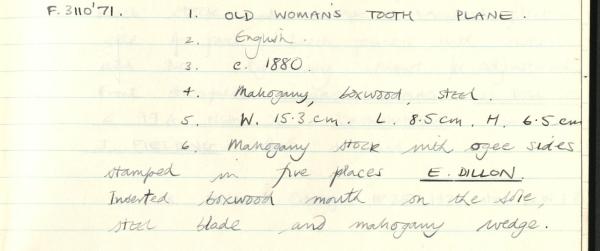 F.3110'71. 1. OLD WOMAN'S TOOTH PLANE.
2. English.
3. c. 1880.
4. Mahogany, boxwood, steel.
5. W. 15.3 cm. L. 8.5 cm. H. 6.5 cm
6. Mahogany stock with ogee sides
stamped in five places E. DILLON.
Inserted boxwood mouth on the sole,
steel blade and mahogany wedge.